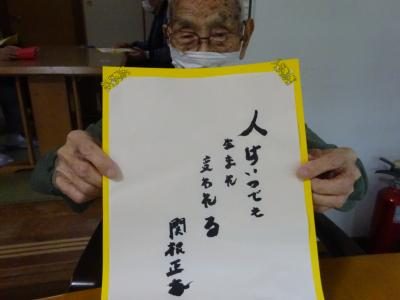 人はいつでも
生まれ
変われる
関根正